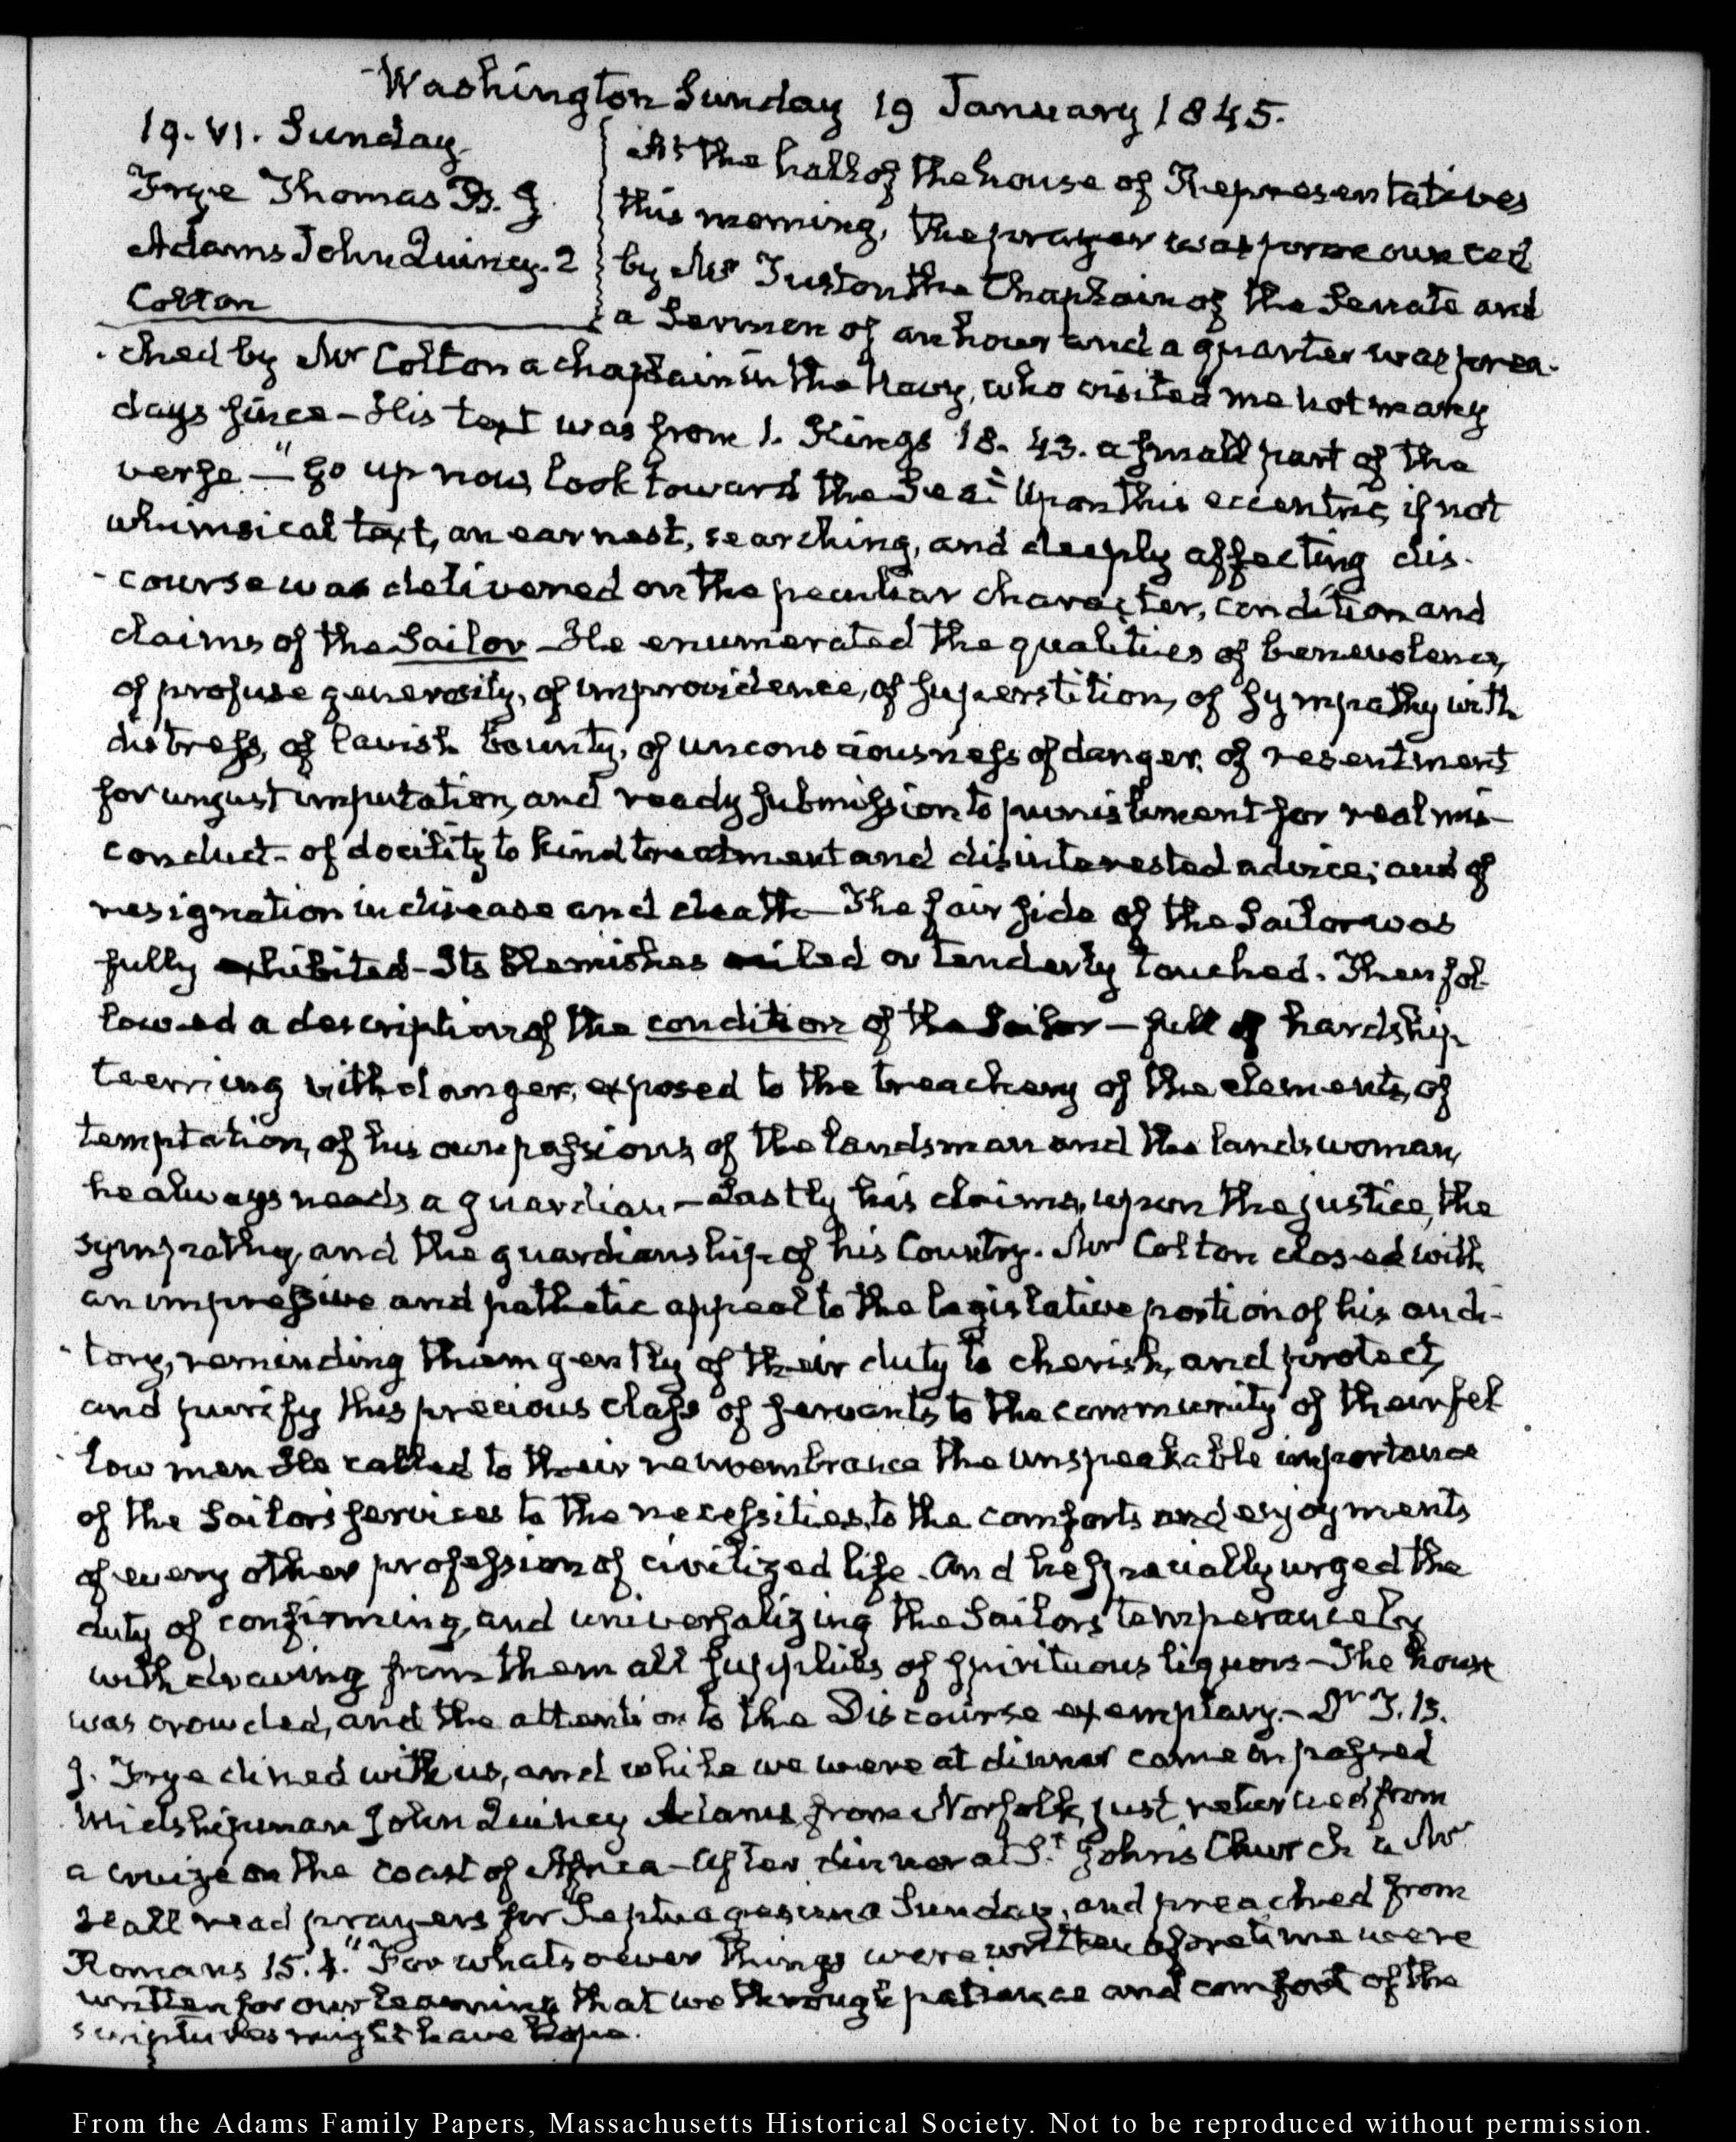 Washington Sunday 19 January 1845.
19. VI. Sunday
Frye Thomas B. J.
Adams John Quincy. 2
Colton
At the hall of the house of Representatives
this morning, the prayer was pronounced
by Mr Tuston the Chaplain of the Senate and
a Sermon of an hour and a quarter was prea-
-ched by Mr Colton a chaplain in the Navy, who visited me not many
days since – His text was from 1. Kings 18. 43. a small part of the
verse – "Go up now, look toward the Sea" Upon this eccentric, if not
whimsical text, an earnest, searching, and deeply affecting dis-
-course was delivered on the peculiar character, condition and
claims of the Sailor – He enumerated the qualities of benevolence,
of profuse generosity, of improvidence, of superstition, of sympathy with
distress, of lavish bounty, of unconsciousness of danger, of resentment
for unjust imputation, and ready submission to punishment for real mis-
conduct – of docility to kind treatment and disinterested advice; and of
resignation in disease and death – The fair side of the Sailor was
fully exhibited – Its blemishes veiled or tenderly touched. Then fol-
lowed a description of the condition of the Sailor – full of hardship
teeming with danger, exposed to the treachery of the elements, of
temptation, of his own passions, of the landsman and the landswoman,
he always needs a guardian – Lastly his claims, upon the justice, the
sympathy, and the guardianship of his Country. Mr Colton closed with
an impressive and pathetic appeal to the legislative portion of his audi-
-tory, reminding them gently of their duty to cherish, and protect,
and purify this precious class of servants to the community of their fel
-low men He called to their remembrance the unspeakable importance
of the Sailors services to the necessities, to the comforts and enjoyments
of every other profession of civilized life. And he specially urged the
duty of confirming, and universalizing the Sailors temperance by
withdrawing from them all supplies of spirituous liquors – The house
was crowded, and the attention to the Discourse exemplary. – Dr T. B.
J. Frye dined with us, and while we were at dinner came in passed
Midshipman John Quincy Adams from Norfolk, just returned from
a cruize on the coast of Africa – After dinner at St. John's Church a Mr
read prayers for Septuagesima Sunday, and preached from
Romans 15. 4. "For whatsoever things were written aforetime were
written for our learning that we through patience and comfort of the
scriptures might have hope.
From the Adams Family Papers, Massachusetts Historical Society. Not to be reproduced without permission.